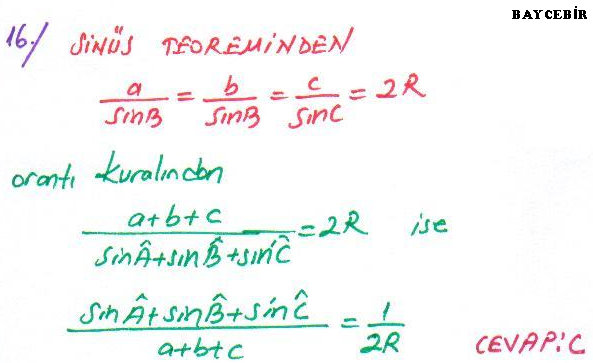 BAYCEBİR
16./ SİNÜS TEOREMİNDEN
a/sinB = b/sinB = c/sinC = 2R
orantı kuralından
a+b+c / sinÂ+sinB̂+sinĈ = 2R ise
sinÂ+sinB̂+sinĈ / a+b+c = 1/2R
CEVAP:C